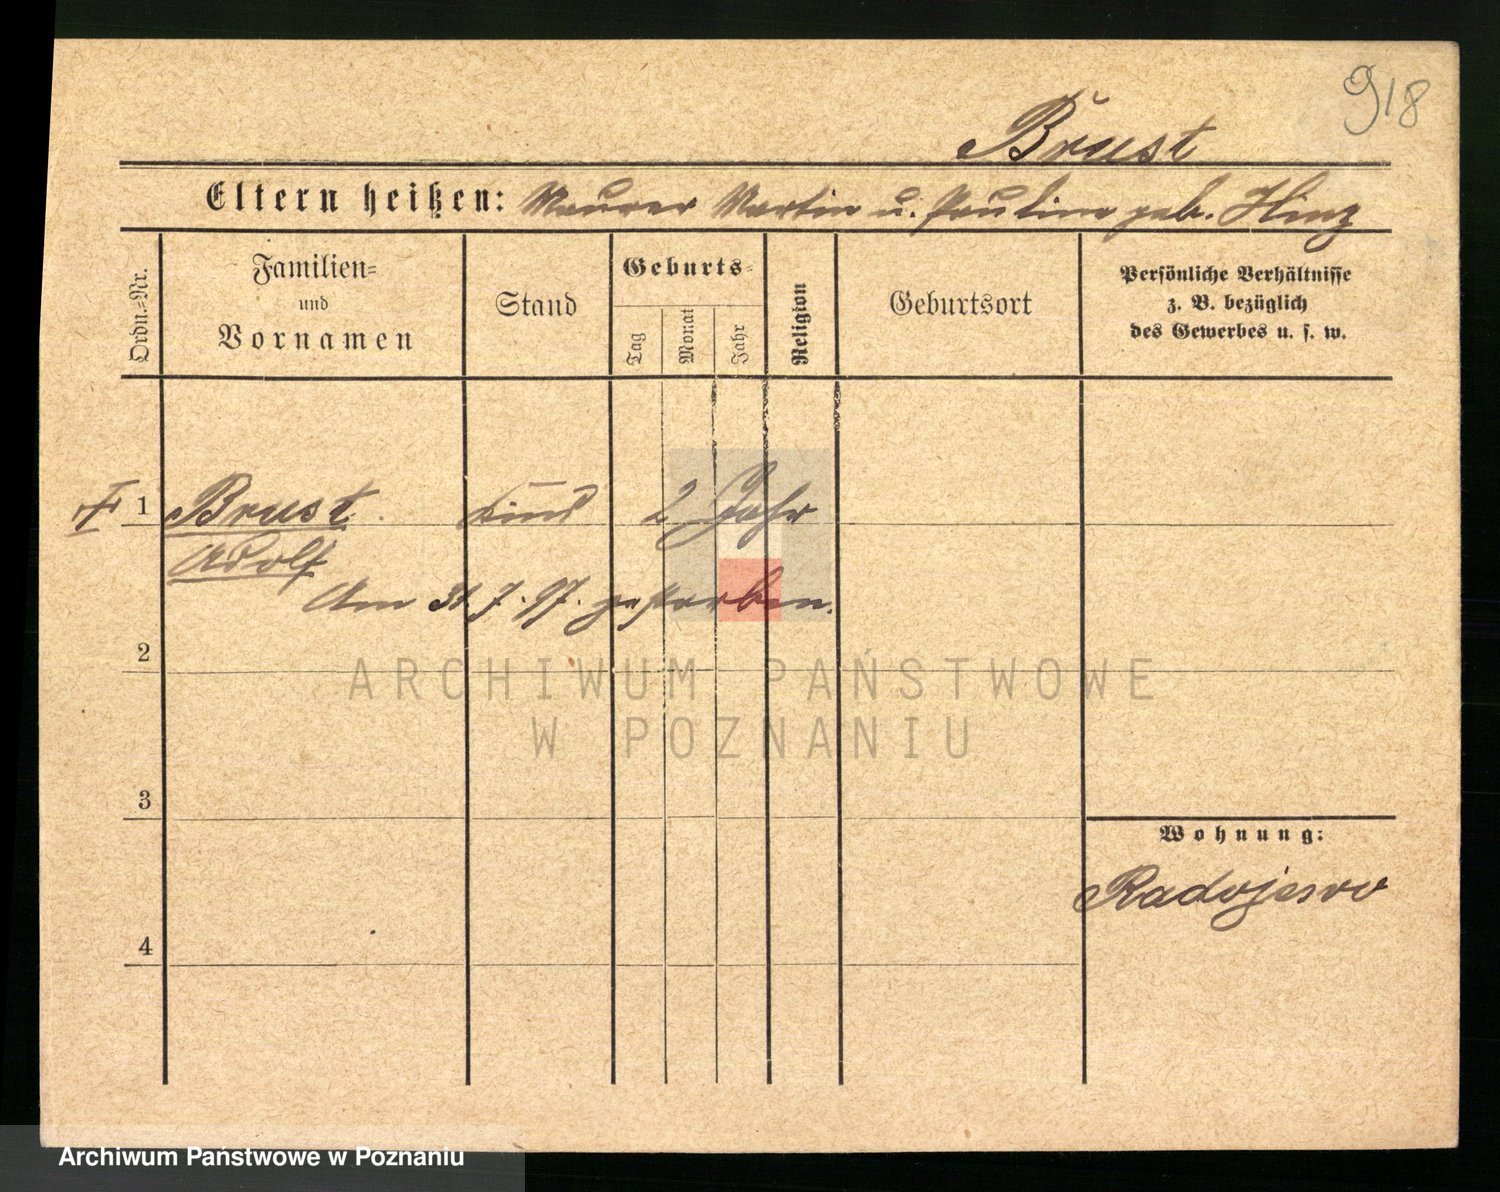 918
Brust
Eltern heißen: Maurer Martin u. Pauline geb. Hinz
Ordn.-Nr.
Familien-
und
Vornamen
Stand
Geburts-
Tag
Monat
Jahr
Religion
Geburtsort
Persönliche Verhältnisse
z. B. bezüglich
des Gewerbes u. s. w.
1 Brust Kind 2 Jahr
Adolf
Am 31.7.97. gestorben.
2
ARCHIWUM PAŃSTWOWE
W POZNANIU
3
Wohnung:
Radojewo
4
Archiwum Państwowe w Poznaniu